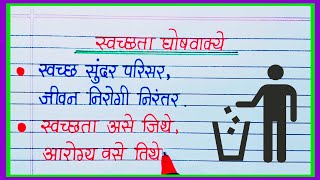 स्वच्छता घोषवाक्ये
स्वच्छ सुंदर परिसर,
जीवन निरोगी निरंतर.
स्वच्छता असे जिथे,
आरोग्य वसे तिथे